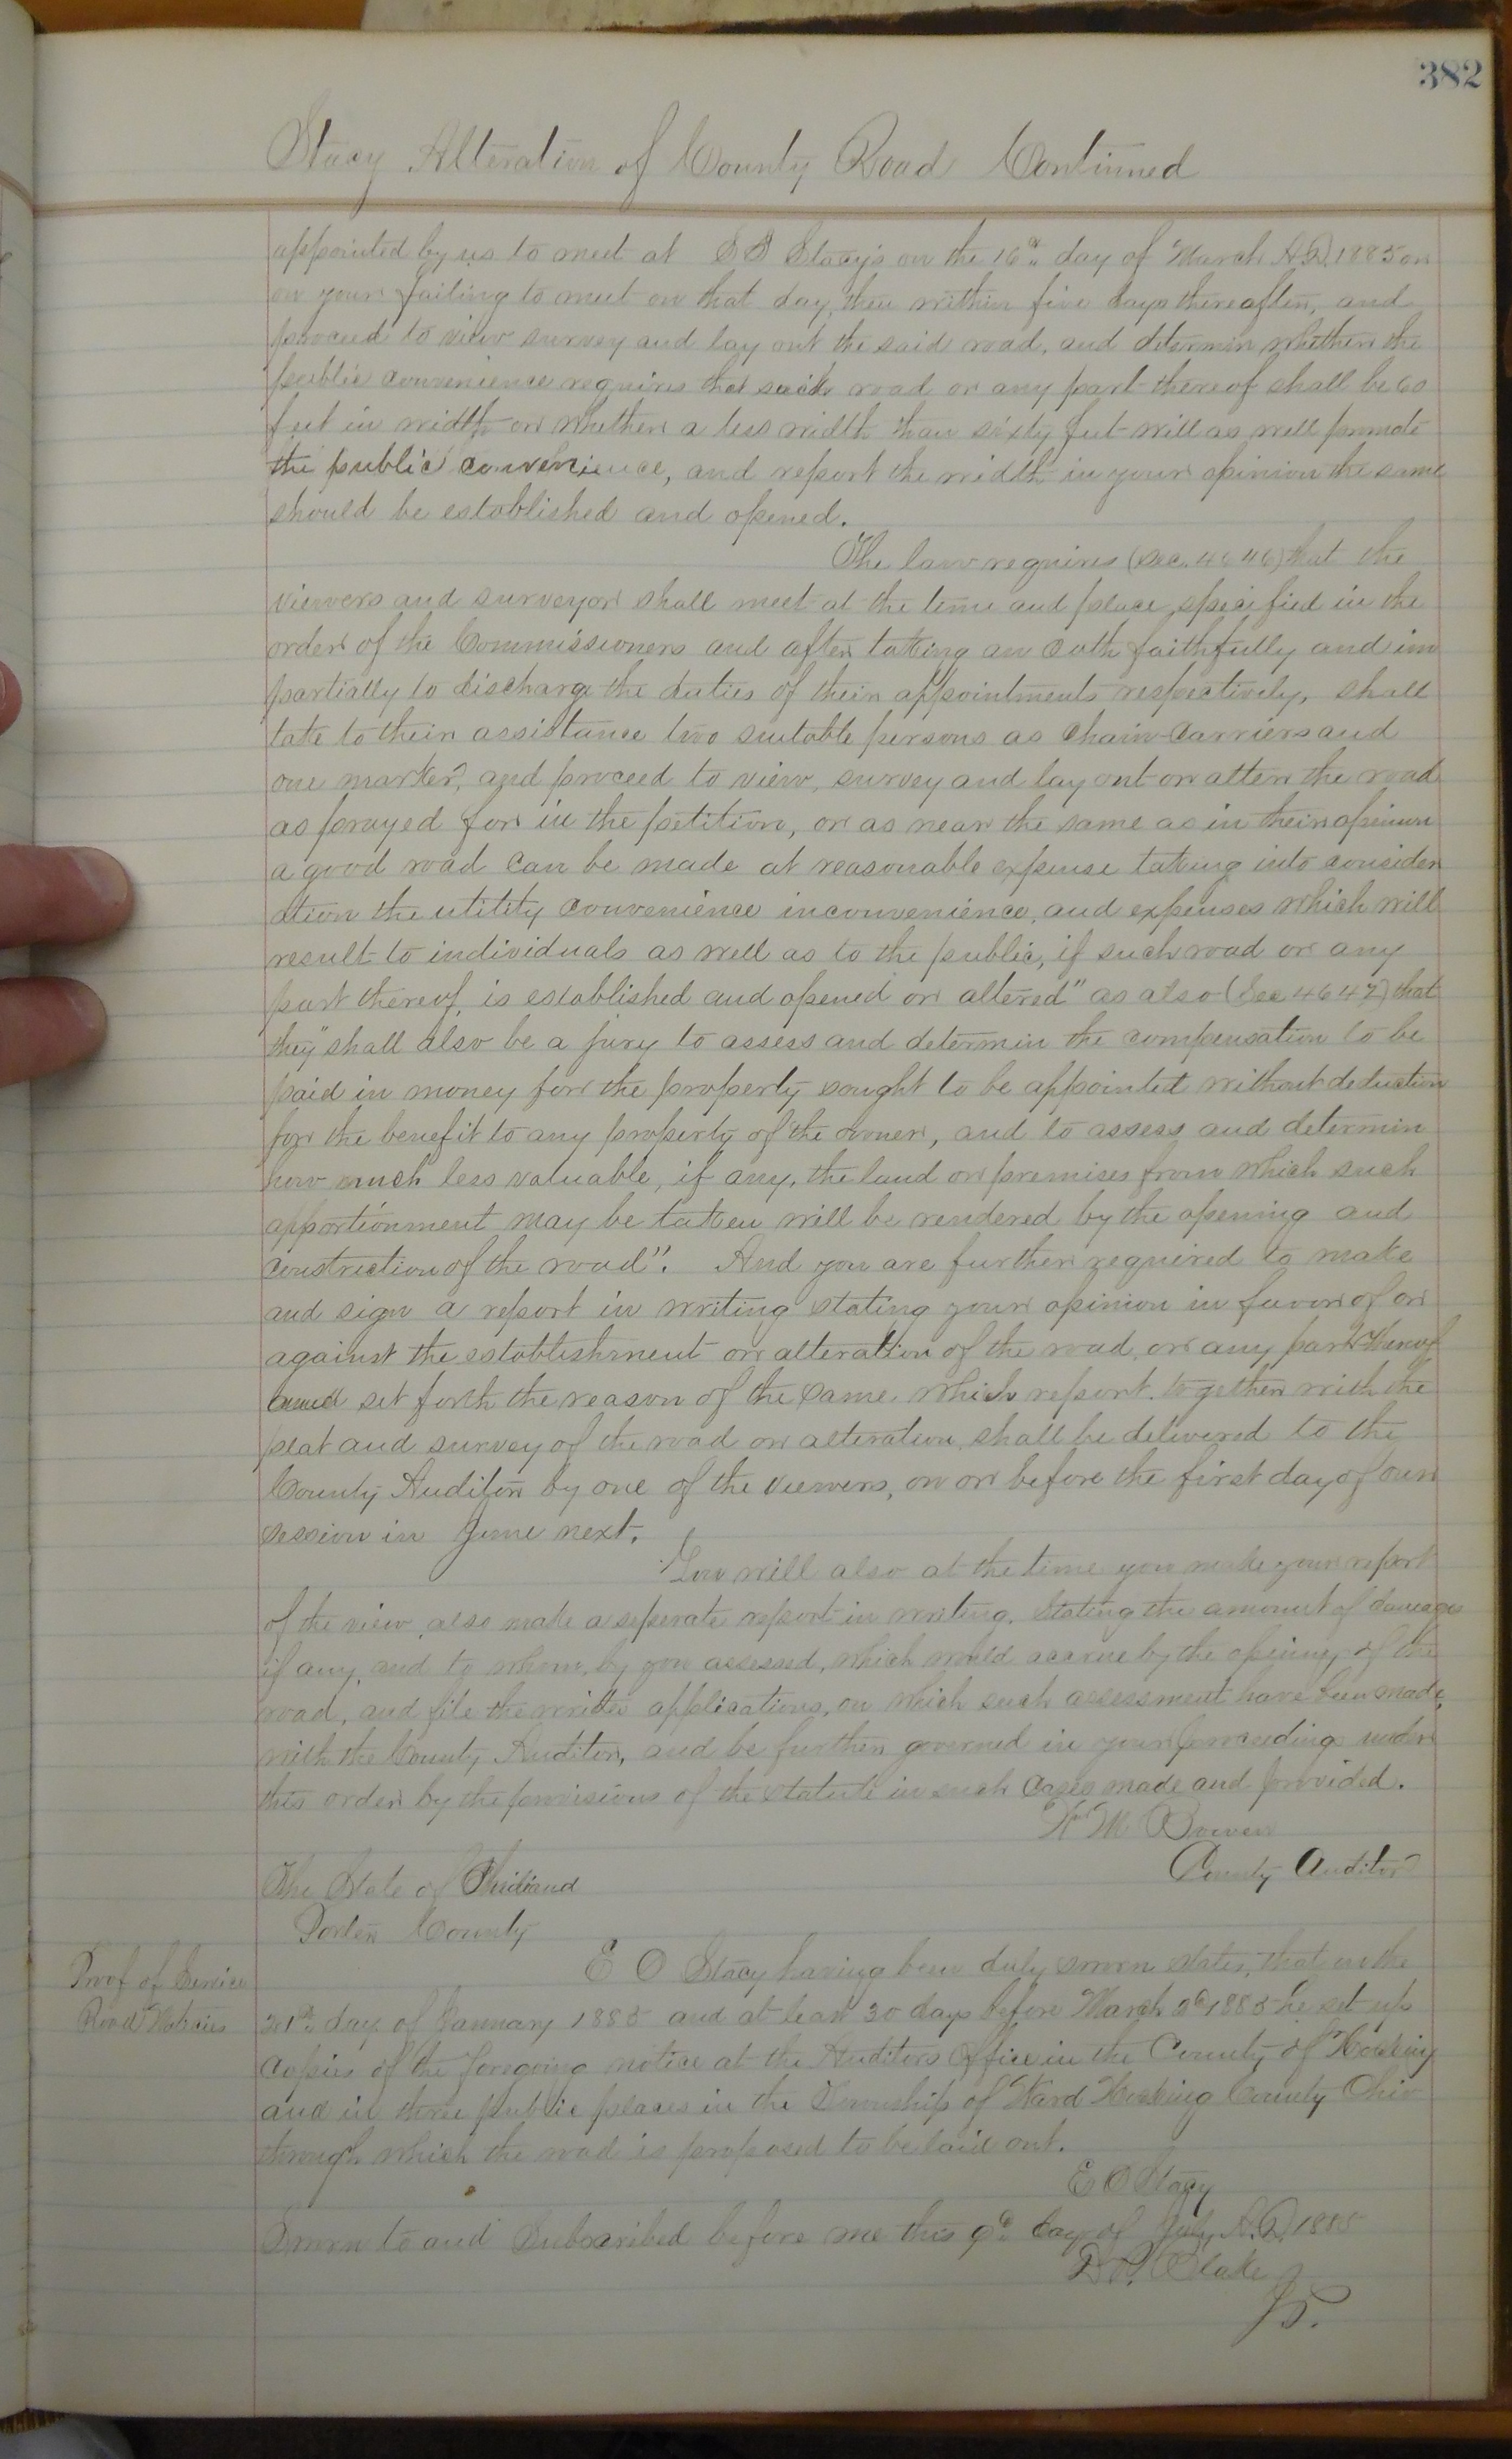 382
Stacy Alteration of County Road Continued
appointed by us to meet at Stacy's on the 16th day of March A.D. 1885 or
on your failing to meet on that day, then within five days thereafter, and
proceed to view survey and lay out the said road, and determin whether the
public convenience requires that such road or any part thereof shall be 60
feet in width or whether a less width than sixty feet will as well promote
the public convenience, and report the width in your opinion the same
should be established and opened.
The law requires (Sec. 4646) that the
viewers and surveyor shall meet at the time and place specified in the
order of the Commissioners and after taking an oath faithfully and im
partially to discharge the duties of their appointments respectively, shall
take to their assistance two suitable persons as Chain Carriers and
one marker, and proceed to view, survey and lay out or alter the road
as prayed for in the petition, or as near the same as in their opinion
a good road can be made at reasonable expense taking into consider
ation the utility convenience inconvenience, and expenses which will
result to individuals as well as to the public, if such road or any
part thereof, is established and opened or altered" as also (Sec 4647) that
they "shall also be a jury to assess and determin the compensation to be
paid in money for the property sought to be appointed without deduction
for the benefit to any property of the owner, and to assess and determin
how much less valuable, if any, the land or premises from which such
apportionment may be taken will be rendered by the opening and
construction of the road". And you are further required to make
and sign a report in writing stating your opinion in favor of or
against the establishment or alteration of the road, or any part thereof
and set forth the reason of the same, which report, together with the
plat and survey of the road or alteration, shall be delivered to the
County Auditor by one of the viewers, on or before the first day of our
session in June next.
You will also at the time you make your report
of the view, also make a seperate report in writing, stating the amount of damages
if any, and to whom, by you assessed, which would accrue by the opening of the
road, and file the written applications, on which such assessment have been made,
with the County Auditor, and be further governed in your proceeding under
this order by the provisions of the statute in such Cases made and provided.
W M Bowen
County Auditor
The State of
County
Proof of Service
Road Notices
E O Stacy having been duly sworn states, that on the
31st day of January 1885 and at least 30 days before March 2d 1885 he set up
copies of the foregoing notice at the Auditors Office in the County of Hocking
and in three public places in the Township of Ward Hocking County Ohio
through which the road is proposed to be laid out.
E O Stacy
Sworn to and Subscribed before me this 9th day of July A.D. 1885